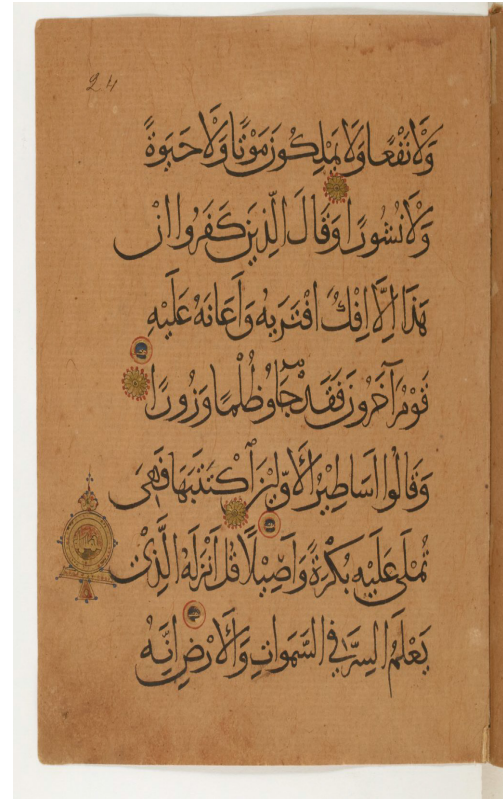 24
وَلَا نَفْعًا وَلَا يَمْلِكُونَ مَوْتًا وَلَا حَيَوٰةً
وَلَا نُشُورًا وَقَالَ الَّذِينَ كَفَرُوا اِنْ
هَذَا اِلَّا اِفْكٌ افْتَرَيهُ وَاَعَانَهُ عَلَيْهِ
قَوْمٌ آخَرُونَ فَقَدْ جَآؤُ ظُلْمًا وَزُورًا
وَقَالُوا اَسَاطِيرُ الْاَوَّلِينَ اكْتَتَبَهَا فَهِيَ
تُمْلَى عَلَيْهِ بُكْرَةً وَاَصِيلًا قُلْ اَنْزَلَهُ الَّذِيْ
يَعْلَمُ السِّرَّ فِي السَّمَوَاتِ وَالْاَرْضِ اِنَّهُ